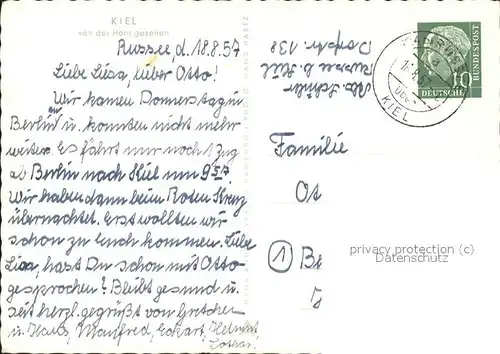 KIEL
von der Hörn gesehen
Russee, d. 18.8.57
Liebe Lisa, lieber Otto!
Wir kamen Donnerstag in
Berlin an u. konnten nicht mehr
weiter. Es fährt nur noch 1 Zug
ab Berlin nach Kiel um 9 57.
Wir haben dann beim Roten Kreuz
übernachtet. Erst wollten wir
schon zu Euch kommen. Liebe
Lisa, hast Du schon mit Otto
gesprochen? Bleibt gesund u.
seit herzl. gegrüßt von Gretchen
u. Manfred, Eckart, Helmut
Lothar.
Russee b. Kiel
Dorfstr. 138
KIEL
10
DEUTSCHE
BUNDESPOST
Familie
Ot
1 Be
privacy protection (c)
Datenschutz